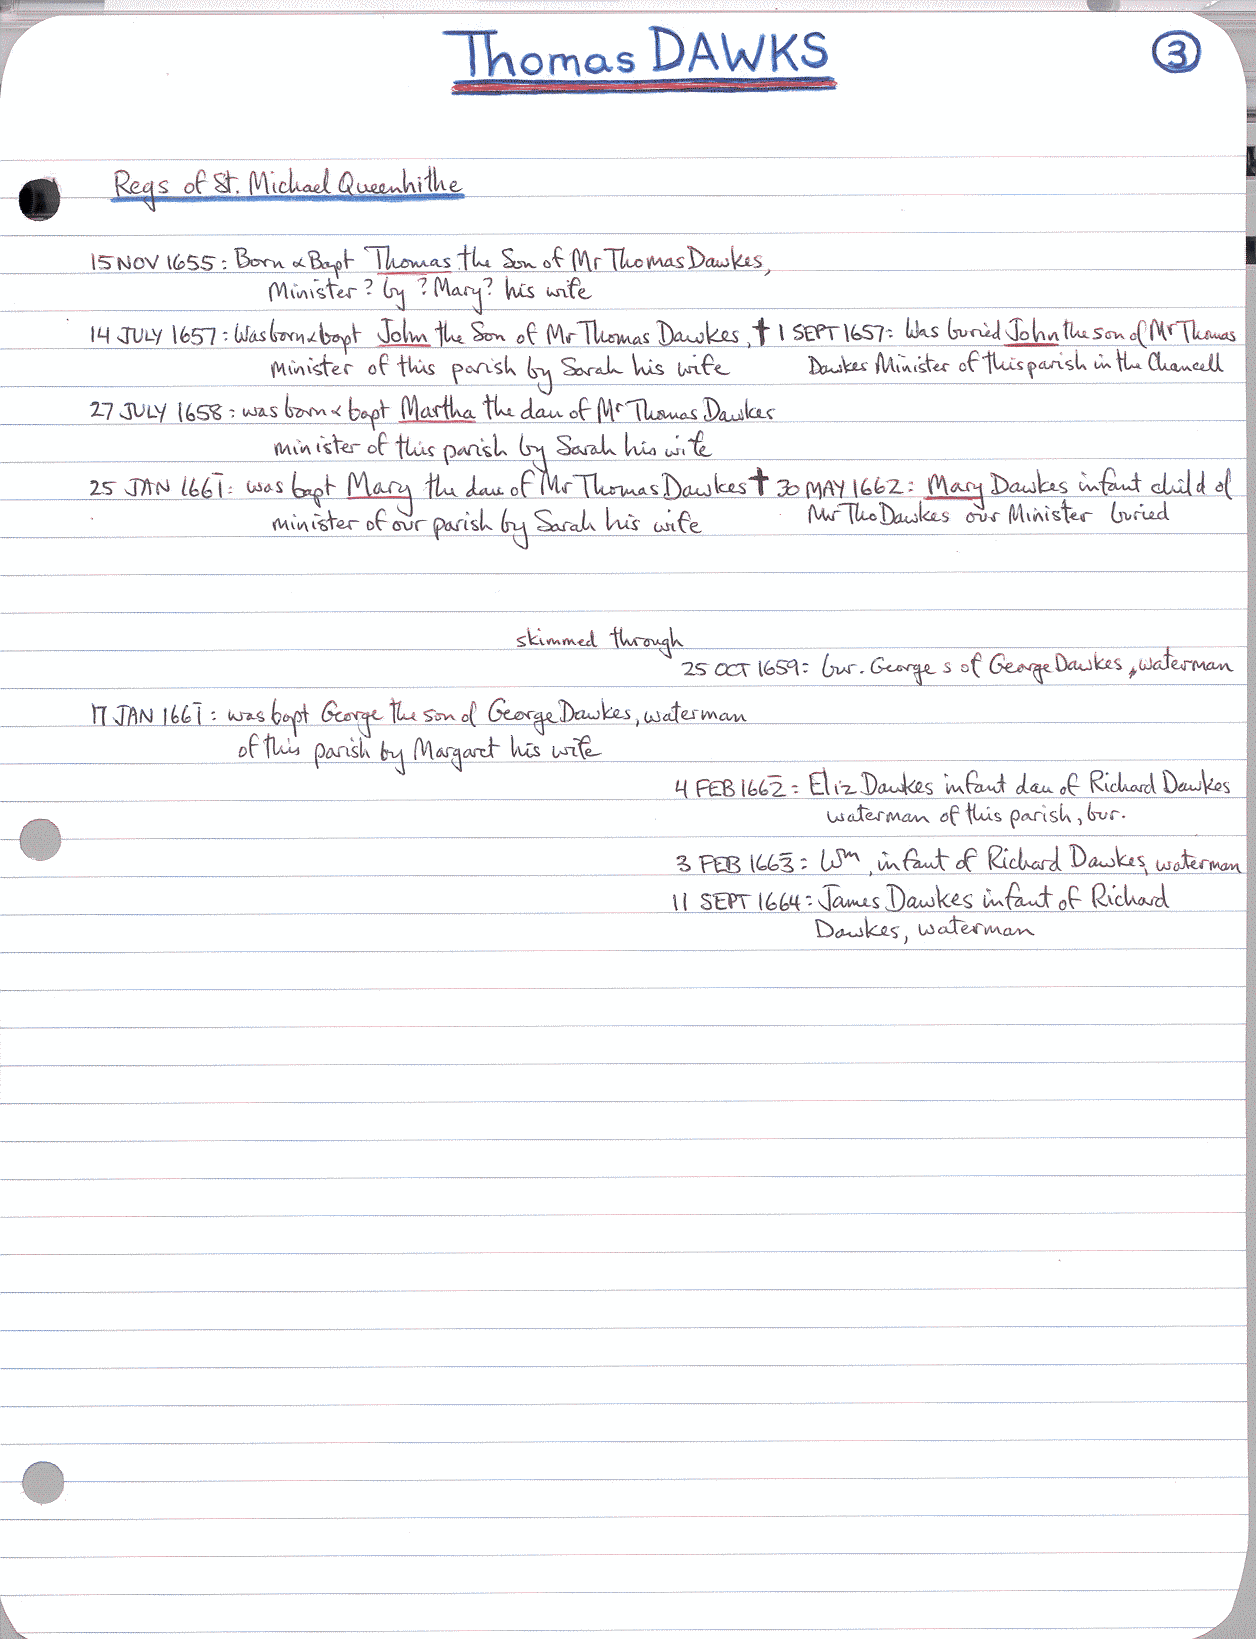 Thomas DAWKS
3
Regs of St. Michael Queenhithe
15 NOV 1655: Born & Bapt Thomas the Son of Mr Thomas Dawkes,
Minister? by ?Mary? his wife
14 JULY 1657: Was born & bapt John the Son of Mr Thomas Dawkes, † 1 SEPT 1657: Was buried John the son of Mr Thomas
minister of this parish by Sarah his wife Dawkes Minister of this parish in the Chancell
27 JULY 1658: was born & bapt Martha the dau of Mr Thomas Dawkes
minister of this parish by Sarah his wife
25 JAN 1661: was bapt Mary the dau of Mr Thomas Dawkes † 30 MAY 1662: Mary Dawkes infant child of
minister of our parish by Sarah his wife Mr Tho Dawkes our Minister buried
skimmed through
25 OCT 1659: bur. George s of George Dawkes, waterman
17 JAN 1661: was bapt George the son of George Dawkes, waterman
of this parish by Margaret his wife
4 FEB 1662: Eliz Dawkes infant dau of Richard Dawkes
waterman of this parish, bur.
3 FEB 1663: Wm, infant of Richard Dawkes, waterman
11 SEPT 1664: James Dawkes infant of Richard
Dawkes, waterman